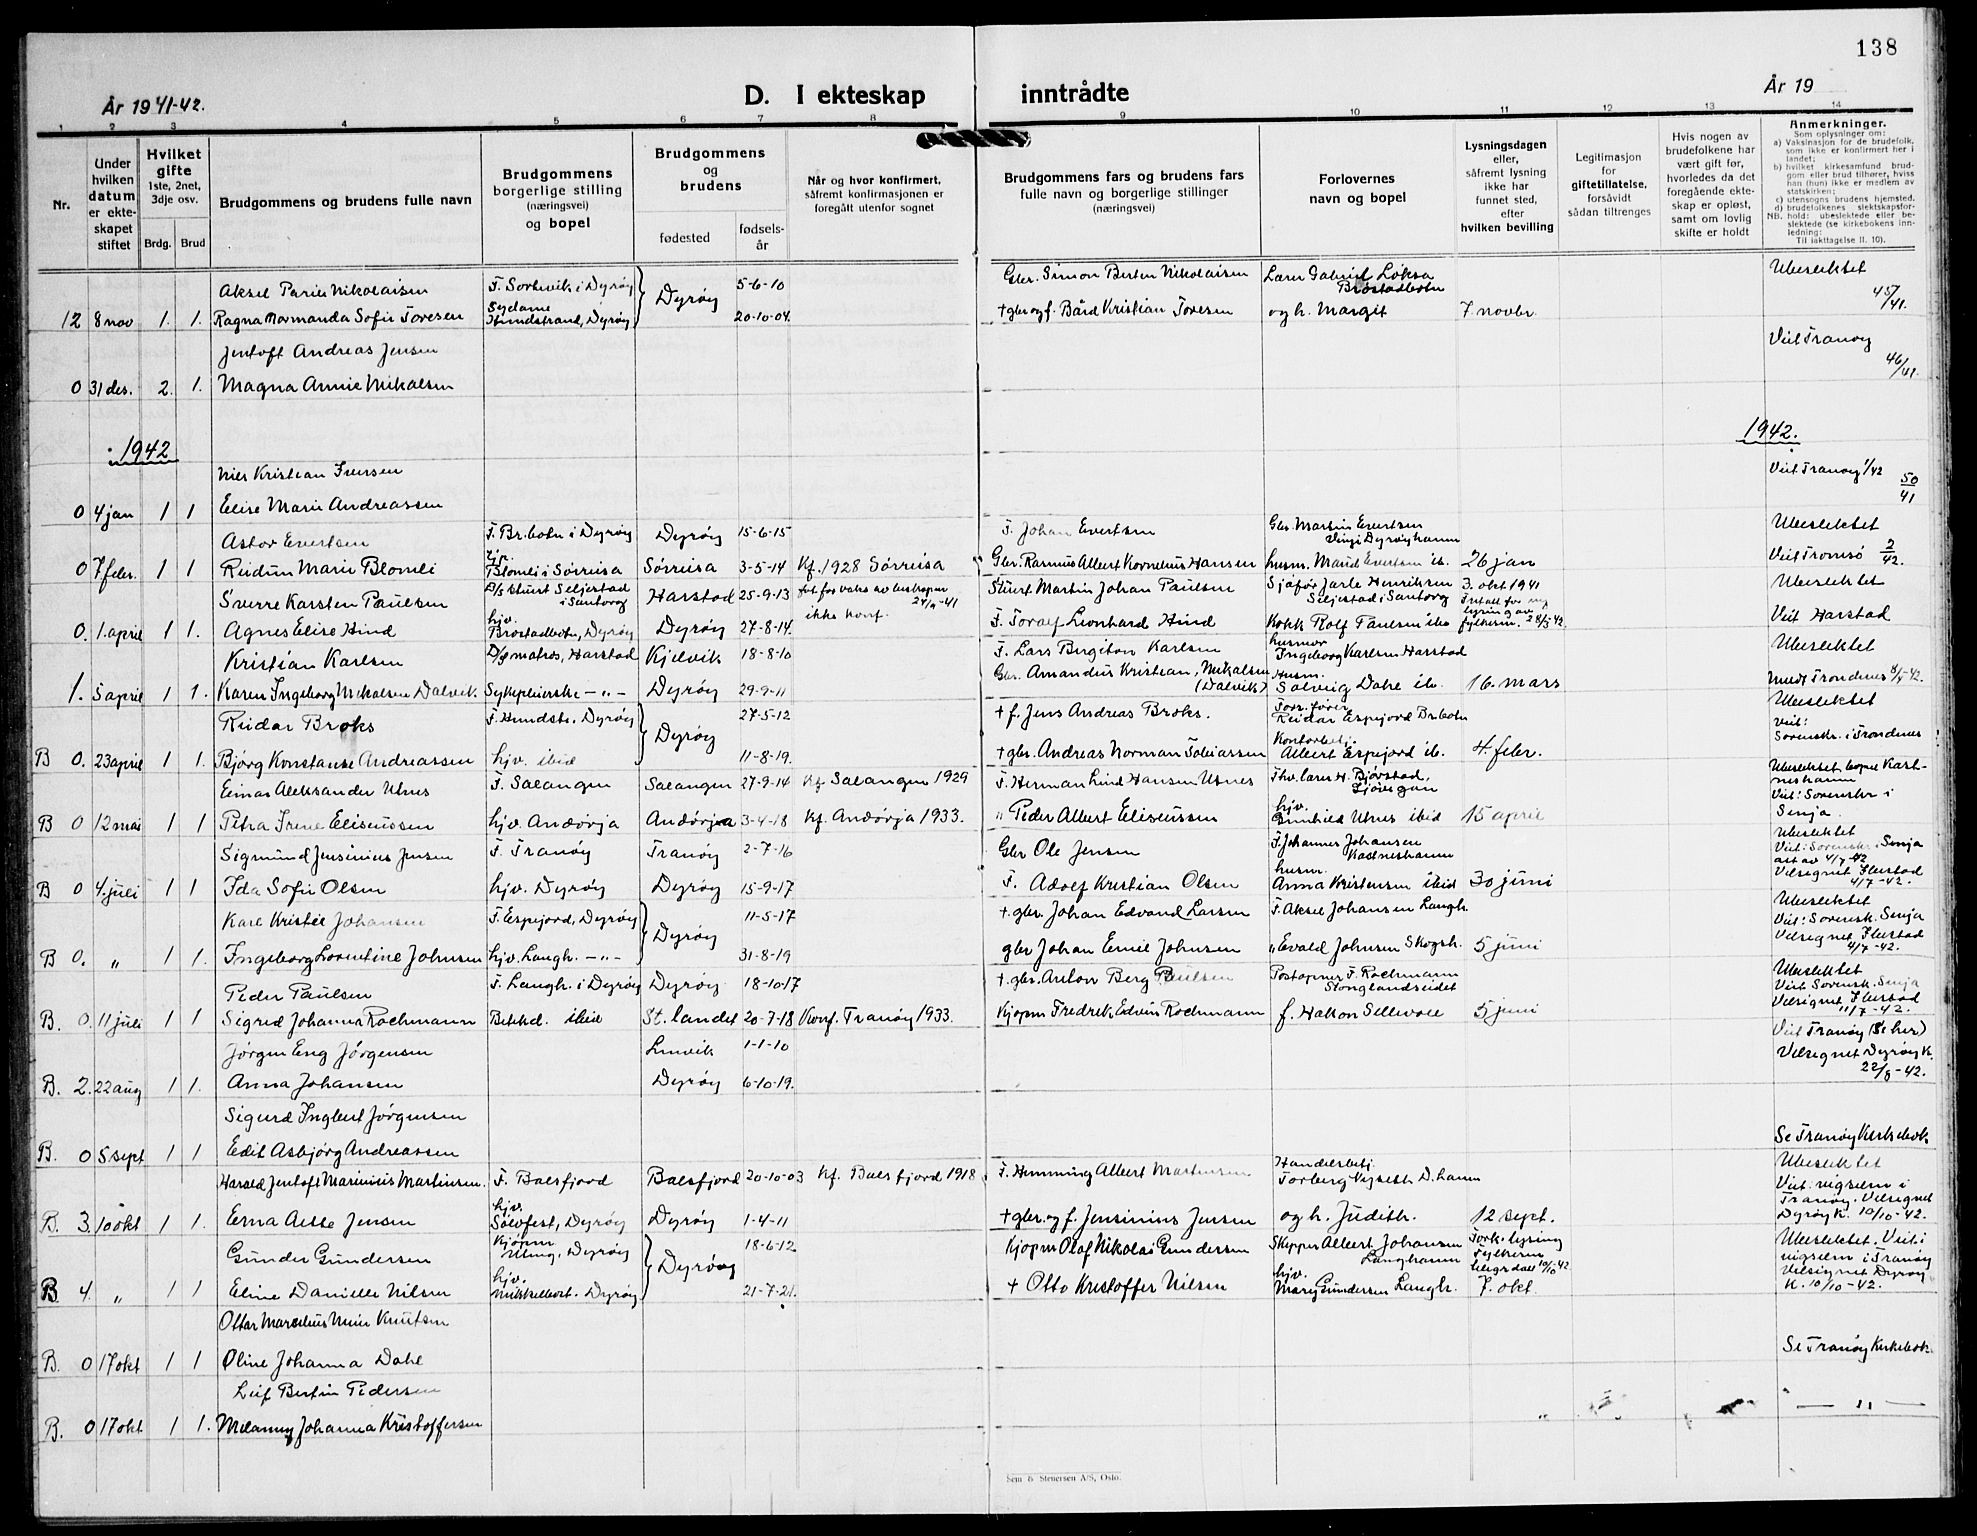 138
År 1941-42.
D. I ekteskap inntrådte
År 19
1 2 3 4 5 6 7 8 9 10 11 12 13 14
Nr.
Under hvilken datum er ekteskapet stiftet
Hvilket gifte 1ste, 2net, 3dje osv.
Brdg. Brud
Brudgommens og brudens fulle navn
Brudgommens borgerlige stilling (næringsvei) og bopel
Brudgommens og brudens
fødested
fødselsår
Når og hvor konfirmert, såfremt konfirmasjonen er foregått utenfor sognet
Brudgommens fars og brudens fars fulle navn og borgerlige stillinger (næringsvei)
Forlovernes navn og bopel
Lysningsdagen eller, såfremt lysning ikke har funnet sted, efter hvilken bevilling
Legitimasjon for giftetillatelse, forsåvidt sådan tiltrenges
Hvis nogen av brudefolkene har vært gift før, hvorledes da det foregående ekteskap er opløst, samt om lovlig skifte er holdt
Anmerkninger.
Som oplysninger om:
a) Vaksinasjon for de brudefolk, som ikke er konfirmert her i landet;
b) hvilket kirkesamfund brudgom eller brud tilhører, hviss han (hun) ikke er medlem av statskirken;
c) utensogns brudens hjemsted.
d) brudefolkenes slektskapsforhold: ubeslektede eller beslektede (se kirkebokens innledning:
NB.
Til iakttagelse II. 10).
Aksel Parier Nikolaisen F. Sorhevik i Dyrøy Dyrøy 5-6-10 Gbr. Simon Berten Nikolaisen Lærer Gabriel Løksa Brøstadbotn Ubeslektet
12 8 nov 1. 1. Ragna Normanda Sofie Toresen Sydame Hundstrand, Dyrøy 20-10-04. + gbr og f. Bård Kristian Toresen og h. Margit 7 novbr. 45/41.
Jentoft Andreas Jensen Viet Tranøy
0 31 des. 2. 1. Magna Annie Mikalsen 46/41.
1942 1942.
Nils Kristian Iversen Viet Tranøy 1/42
0 4 jan 1 1 Elise Marie Andreassen 50/41
Astor Evertsen F. Br.botn i Dyrøy Dyrøy 15-6-15 F. Johan Evertsen Gbr. Martin Evertsen Vinje Dyrøyhamn Ubeslektet
0 7 febr. 1 1 Reidun Marie Blomli hjv. Blomli i Sørreisa Sørreisa 3-5-14 Kf. 1928 Sørreisa Gbr. Rasmus Albert Kornelius Hansen husm. Maud Evertsen ib. 26 jan Viet Tromsø 2/42.
Sverre Karsten Paulsen D/S stuert Seljestad i Santorg Harstad 25-9-13 24/9-41 Stuert Martin Johan Paulsen Sjåfør Jarle Henriksen Seljestad i Santorg 3. okt 1941 Ubeslektet
0. 1. april 1 1. Agnes Elise Hind hjv. Brøstadbotn, Dyrøy Dyrøy 27-8-14. ikke konf. F. Toralf Leonhard Hind Kokk Rolf Paulsen ibo fylkesm. 28/3-42. Viet Harstad
Kristian Karlsen D/S matros, Harstad Kjelvik 18-8-10 F. Lars Birgiton Karlsen husmor Ingeborg Karlsen Harstad Ubeslektet
1. 5 april 1 1. Karen Ingeborg Mikalsen Dalvik Sykepleierske -"- Dyrøy 29-9-11 Gbr. Amandus Kristian, Mikalsen (Dalvik) Husm. Solveig Dahl ib. 16. mars Trondenes 8/5-42.
Reidar Broks F. Hundstr., Dyrøy Dyrøy 27-5-12 + f. Jens Andreas Broks. Reidar Espejord Br.botn Ubeslektet
B 0. 23 april 1 1. Bjørg Konstanse Andreassen hjv. ibid 11-8-19. + gbr. Andreas Norman Tobiassen Kontorbetj. Albert Espejord ib. 4. febr. viet: Sorenskr. i Trondenes
Einar Aleksander Utnes F. Salangen Salangen 27-9-14 Kf Salangen 1929 F. Herman Lind Hansen Utnes Fhv. lærer H. Bjørstad, Ubeslektet. bopel Kastneshamn
B 0 12 mai 1 1 Petra Irene Eliseussen hjv. Andørja Andørja 3-4-18 Kf. Andørja 1933. " Peder Albert Eliseussen hjv. Gunhild Utnes ibid 15 april Viet: Sorenskr i Senja.
Sigmund Jensinius Jensen F. Tranøy Tranøy 2-7-16 Gbr Ole Jensen F. Johannes Johansen Kastneshamn Ubeslektet Viet: Sorenskr. Senja 4/7-42
B 0 4. juli 1 1 Ida Sofie Olsen hjv. Dyrøy Dyrøy 15-9-17 F. Adolf Kristian Olsen husm. Anna Kristensen ibid 30 juni Velsignet Flestad 4/7-42.
Karl Kristie Johansen F. Espejord, Dyrøy Dyrøy 11-5-17 + gbr. Johan Edvard Larsen F. Aksel Johansen Langh. Ubeslektet Viet: Sorensk. Senja
B 0. " 1 1. Ingeborg Lorentine Johnsen hjv. Langh. -"- 31-8-19 gbr Johan Emil Johnsen " Evald Johnsen Skogsh. 5 juni Velsignet Flestad 4/7-42.
Peder Paulsen F. Langh. i Dyrøy Dyrøy 18-10-17 + gbr. Anton Berg Paulsen Postopner F. Rochmann Stonglandseidet Ubeslektet Viet Sorensk. Senja
B. 0. 11 juli 1 1 Sigrid Johanna Rochmann Betskd. ibid St. landet 20-7-18 Konf. Tranøy 1933. Kjøpm Fredrik Edvin Rochmann f. Hakon Sellevoll 5 juni Velsignet Flestad 11/7-42.
Jørgen Eng Jørgensen Lenvik 1-1-10 Viet Tranøy (Se her)
B. 2. 22 aug 1 1. Anna Johansen Dyrøy 6-10-19. Velsignet Dyrøy K. 22/8-42.
Sigurd Inglent Jørgensen
B. 0 5 sept 1 1 Edit Asbjørg Andreassen Se Tranøy Kirkebok
Harald Jentoft Marinius Martinsen. F. Balsfjord Balsfjord 20-10-03 Kf. Balsfjord 1918 F. Hemming Albert Martensen Handelsbetj. Torberg D.hamn Ubeslektet
B. 3. 10 okt 1 1. Erna Aesse Jensen hjv. Solvfest, Dyrøy Dyrøy 1-4-11 + gbr. og f. Jensinius Jensen og h. Judith. 12 sept. Viet: vigselm i Tranøy. Velsignet Dyrøy K. 10/10-42.
Gunder Gundersen Kjøpm Dyrøy Dyrøy 18-6-12 Kjøpm Olaf Nikolai Gundersen Skipper Albert Johansen Langhamn Fork. lysing Fylkesm 10/10-42 Ubeslektet. Viet: vigselm i Tranøy
B 4. " 1 1 Eline Danielle Nilsen hjv. Mikkelbost. Dyrøy 21-7-21. + Otto Kristoffer Nilsen hjv. Mary Gundersen Langh. 7. okt. Velsignet Dyrøy K. 10/10-42.
Ottar Marselius Meier Knutsen
B. 0 17 okt 1 1 Oline Johanna Dahl Se Tranøy Kirkebok.
Leif Bertin Pedersen
B. 0 17 okt 1 1. Melanny Johanna Kristoffersen " — " —
Sem & Stenersen A/S, Oslo.